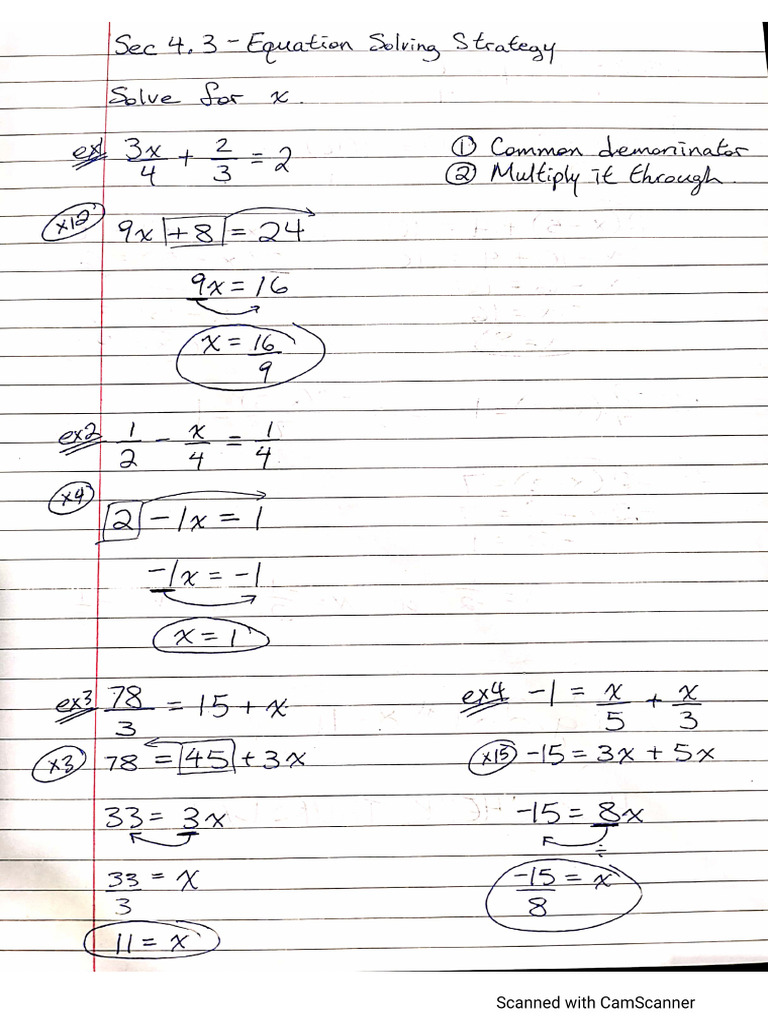 Sec 4.3 - Equation Solving Strategy
Solve for x.
ex1 3x/4 + 2/3 = 2
① Common demoninator
② Multiply it through.
×12 9x +8 = 24
9x = 16
x = 16/9
ex2 1/2 - x/4 = 1/4
×4
2 - 1x = 1
-1x = -1
x = 1
ex3 78/3 = 15 + x
×3 78 = 45 + 3x
33 = 3x
33/3 = x
11 = x
ex4 -1 = x/5 + x/3
×15 -15 = 3x + 5x
-15 = 8x
÷
-15/8 = x
Scanned with CamScanner